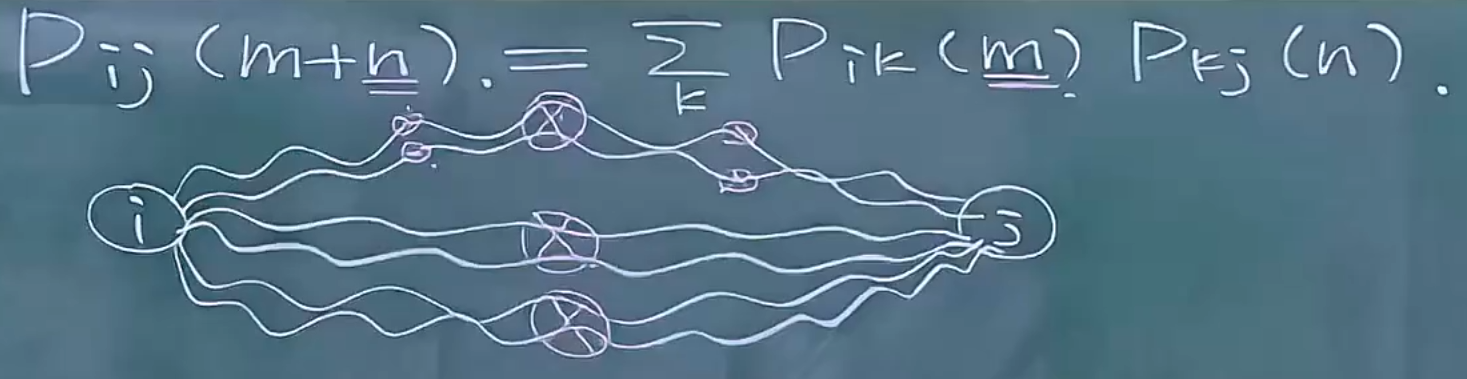 Pij (m+n). = Σk Pik (m) Pkj (n).
i j